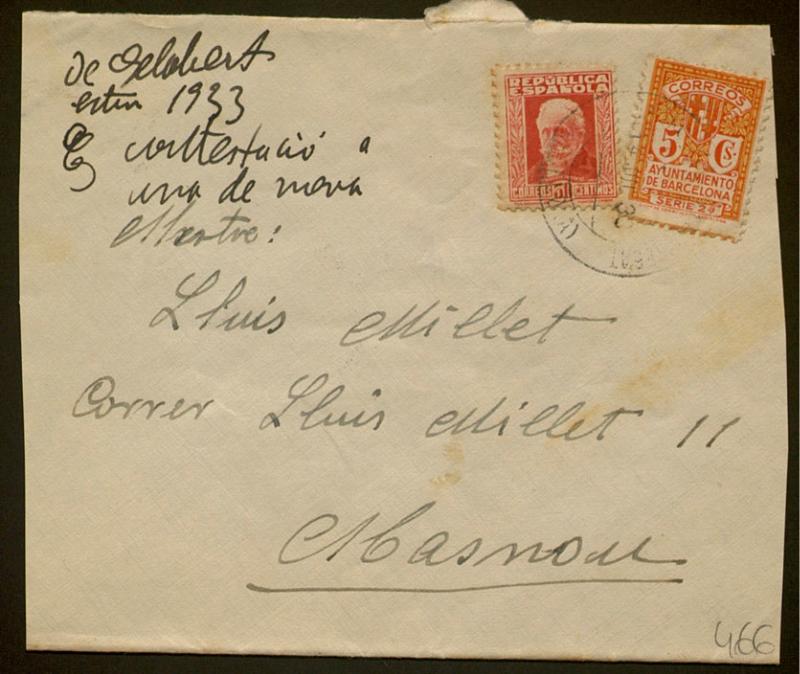 de Gelabert
estiu 1933
Es contestació a
una de meva
Mestre:
Lluis Millet
Correr Lluis Millet 11
Masnou
466
REPÚBLICA
ESPAÑOLA
CORREOS 30 CENTIMOS
CORREOS
5 Cs.
AYUNTAMIENTO
DE BARCELONA
SERIE 2ª